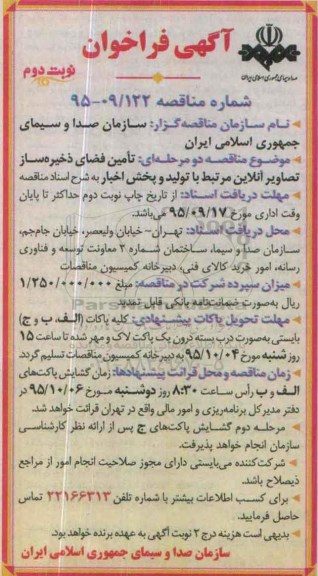 آگهی فراخوان
نوبت دوم
صدا و سیمای جمهوری اسلامی ایران
شماره مناقصه ۰۹/۱۲۲-۹۵
نام سازمان مناقصه گزار: سازمان صدا و سیمای
جمهوری اسلامی ایران
موضوع مناقصه دو مرحله‌ای: تأمین فضای ذخیره‌ساز
تصاویر آنلاین مرتبط با تولید و پخش اخبار به شرح اسناد مناقصه
مهلت دریافت اسناد: از تاریخ چاپ نوبت دوم حداکثر تا پایان
وقت اداری مورخ ۹۵/۰۹/۱۷ می‌باشد.
محل دریافت اسناد: تهران- خیابان ولیعصر، خیابان جام‌جم،
سازمان صدا و سیما، ساختمان شماره ۳ معاونت توسعه و فناوری
رسانه، امور خرید کالای فنی، دبیرخانه کمیسیون مناقصات
میزان سپرده شرکت در مناقصه: مبلغ ۱/۲۵۰/۰۰۰/۰۰۰
ریال به‌صورت ضمانت‌نامه بانکی قابل تمدید
مهلت تحویل پاکات پیشنهادی: کلیه پاکات (الف، ب و ج)
بایستی به‌صورت درب بسته درون یک پاکت لاک و مهر شده تا ساعت ۱۵
روز شنبه مورخ ۹۵/۱۰/۰۴ به دبیرخانه کمیسیون مناقصات تسلیم گردد.
زمان مناقصه و محل قرائت پیشنهادها: زمان گشایش پاکت‌های
الف و ب رأس ساعت ۸:۳۰ روز دوشنبه مورخ ۹۵/۱۰/۰۶ در
دفتر مدیرکل برنامه‌ریزی و امور مالی واقع در تهران قرائت خواهد شد.
مرحله دوم گشایش پاکت‌های ج پس از ارائه نظر کارشناسی
سازمان انجام خواهد پذیرفت.
شرکت‌کننده می‌بایستی دارای مجوز صلاحیت انجام امور از مراجع
ذیصلاح باشد.
برای کسب اطلاعات بیشتر با شماره تلفن ۲۲۱۶۶۳۱۳ تماس
حاصل فرمایید.
بدیهی است هزینه درج ۲ نوبت آگهی به عهده برنده خواهد بود.
سازمان صدا و سیمای جمهوری اسلامی ایران